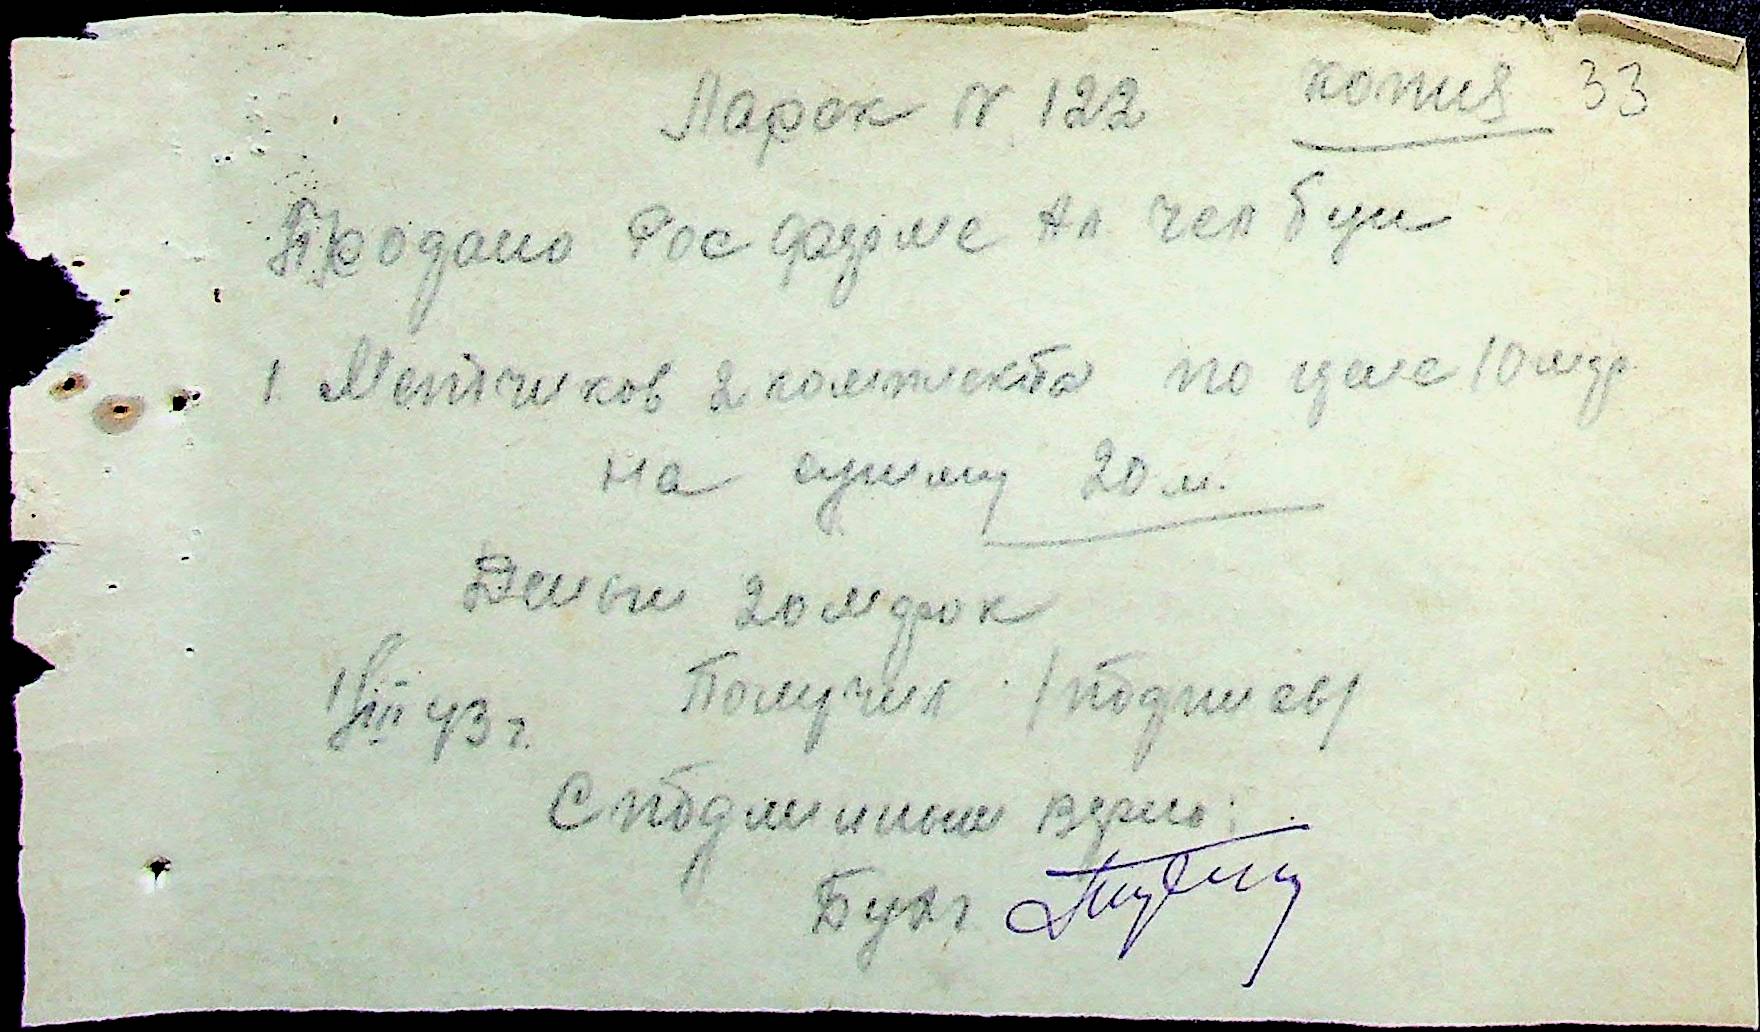 Ларок N 122 копия 33
Продано Рос фирме Ал чел буи
1. Метчиков 2 комплекта по цене 10 мар
на сумму 20 м.
Деньги 20 марок
1/VIII 43 г. Получил /подпись/
С подлинным верно:
Бухг